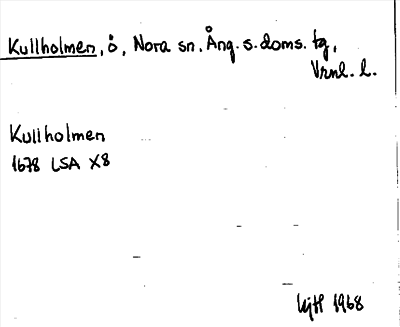 Kullholmen, ö, Nora sn. Ång. s. doms. tg,
Vrnl. l.
Kullholmen
1678 LSA X8
1968